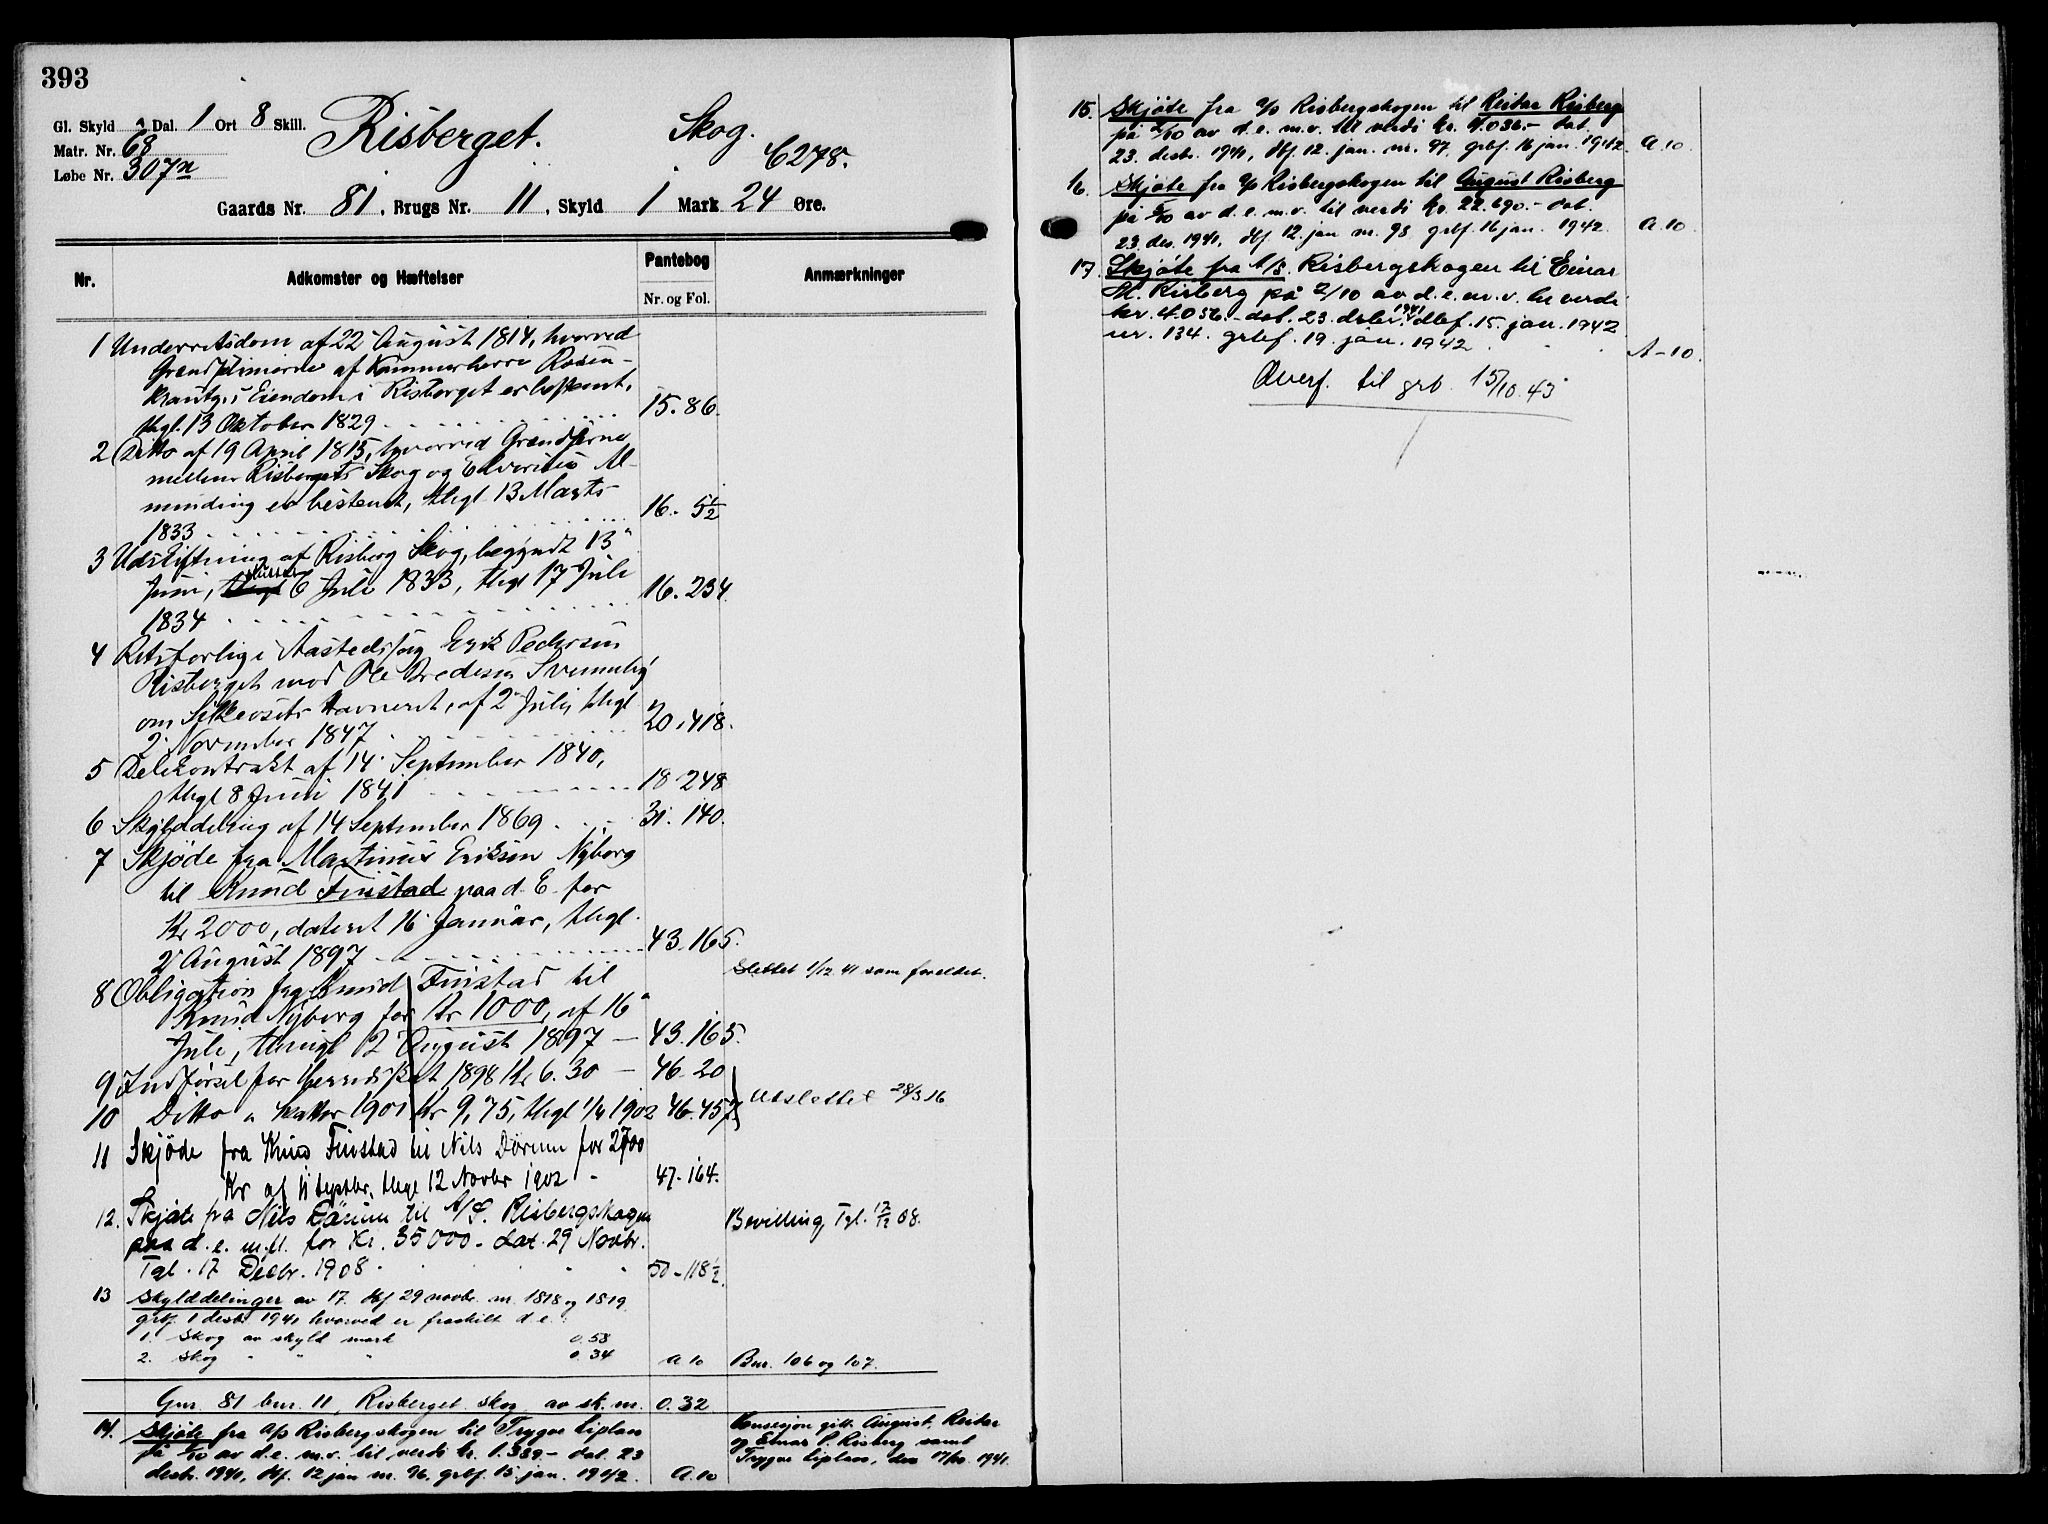 393
Gl. Skyld Dal. 1 Ort 8 Skill.
Risberget.
Skog.
6278.
Matr. Nr. 68
Løbe Nr. 307n
Gaards Nr. 81, Brugs Nr. 11, Skyld 1 Mark 24 Øre.
Nr.
Adkomster og Hæftelser
Pantebog
Nr. og Fol.
Anmærkninger
1 Underretsdom af 22 August 1814, hvorved
af Kammerherre Rosen-
krantz's Eiendom i Risberget er bestemt,
thgl. 13 Oktober 1829 15. 86.
2 Ditto af 19 April 1815, hvorved
mellem Risbergets Skog og Al-
minding er bestemt, thgl 13 Marts
1833 16. 5½
3 Udskiftning af Risberg Skog, begyndt 13
Juni, sluttet 6 Juli 1833, thgl 17 Juli
1834 16. 234
4 Retsforlig i Aastedssag Erik Pedersen
Risberget mod Ole
om Havneret, af 2 Juli, thgl
2 November 1847 20. 418.
5 Delekontrakt af 14 September 1840,
thgl 8 Juni 1841 18 248
6 Skylddeling af 14 September 1869 31. 140.
7 Skjøde fra Martinus Eriksen Nyborg
til Knud Finstad paa d. E. for
Kr 2000, dateret 16 Januar, thgl.
2 August 1897 43. 165.
Slettet 1/12 41 som foreldet.
8 Obligation fra Knud Finstad til
Knud Nyborg for Kr 1000, af 16
Juli, thingl 2 August 1897 — 43. 165.
9 Indførsel for Herredsskat 1898 Kr 6.30 — 46. 20
10 Ditto " Skatter 1901 Kr 9,75, thgl 1/4 1902 46. 457.
Utslettet 28/3 16
11 Skjøde fra Knud Finstad til Nils Dörum for 2700
Kr af 11 Septbr, thgl 12 Novbr 1902 47. 164.
12. Skjøte fra Nils Dörum til A/S. Risbergskogen
paa d. e. m.fl. for Kr. 35000.- dat. 29 Novbr.
Tgl. 17 Decbr. 1908. 50 - 118½.
Bevilling, Tgl. 17/12 08.
13 Skylddelinger av 17. dbf 29 novbr. nr. 1818 og 1819
grbf. 1 desbr 1941 hvorved er fraskilt d.e.:
1. Skog av skyld mark 0.58
2. Skog " " " 0.34 A 10
Bnr. 106 og 107.
Gnr. 81 bnr. 11, Risberget skog av sk. m. 0.32
14. Skjøte fra A/S Risbergskogen til Trygve Liplass
på 1/10 av d.e. m.v. til verdi kr. 1.389.- dat. 23
desbr. 1941, dbf. 12 jan nr. 96, grbf. 15. jan. 1942. A. 10
Konsesjon gitt August, Reidar
og Einar P. Risberg samt
Trygve Liplass, den 17/10. 1941.
15. Skjøte fra A/S Risbergskogen til Reidar Risberg
på 2/10 av d.e. m.v. til verdi kr. 4.036.- dat.
23. desbr. 1941, dbf. 12. jan. nr. 97, grbf. 16 jan. 1942. A. 10
16. Skjøte fra A/S Risbergskogen til August Risberg
på 5/10 av d.e. m.v. til verdi kr. 22.690.- dat.
23. des. 1941, dbf 12. jan nr. 98 grbf. 16 jan. 1942. A. 10.
17. Skjøte fra A/S. Risbergskogen til Einar
M. Risberg på 2/10 av d.e. m.v. til verdi
kr. 4.036.- dat. 23. desbr. 1941 dbf. 15. jan. 1942
nr. 134. grbf. 19. jan. 1942 A - 10.
Overf. til grb. 15/10. 45